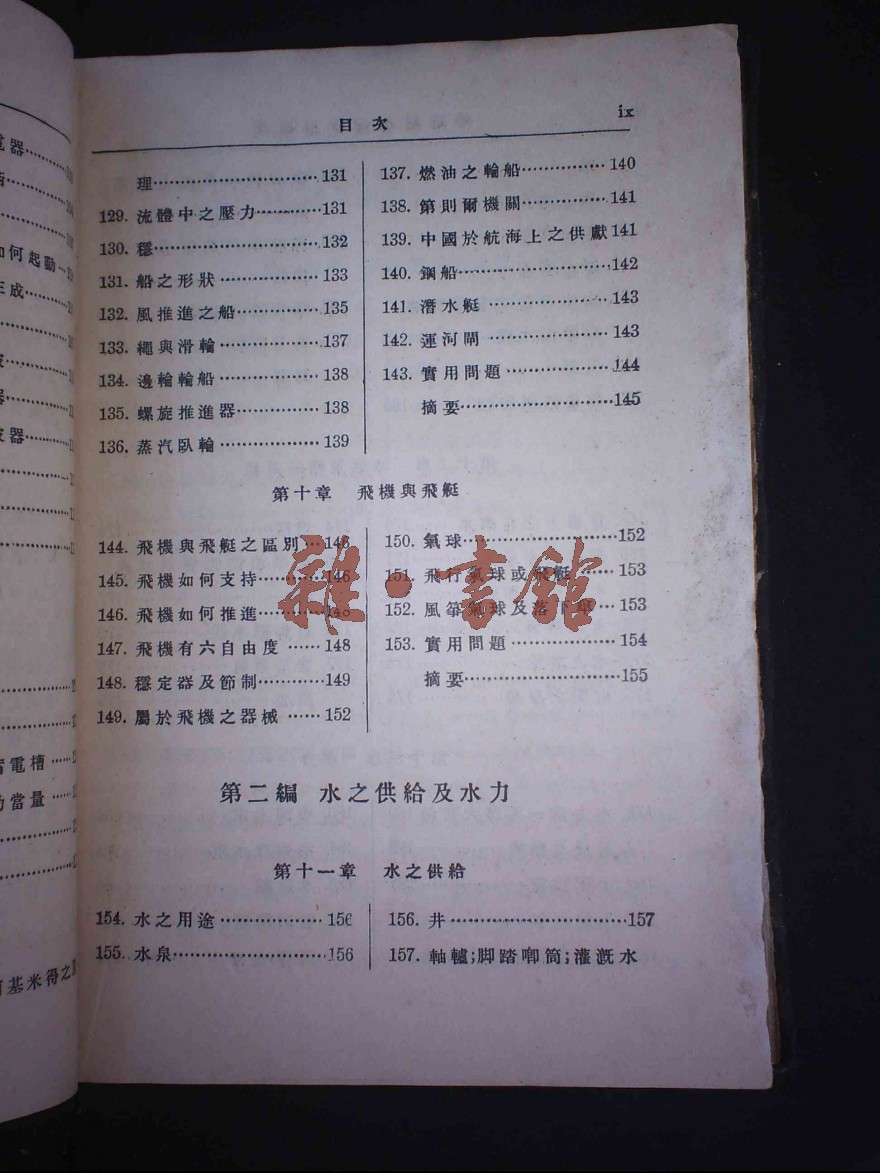 目次
ix
理…131
129. 流體中之壓力…131
130. 穩…132
131. 船之形狀…133
132. 風推進之船…135
133. 繩與滑輪…137
134. 邊輪輪船…138
135. 螺旋推進器…138
136. 蒸汽臥輪…139
137. 燃油之輪船…140
138. 第則爾機關…141
139. 中國於航海上之供獻141
140. 鋼船…142
141. 潛水艇…143
142. 運河閘…143
143. 實用問題…144
摘要…145
第十章 飛機與飛艇
144. 飛機與飛艇之區別…146
145. 飛機如何支持…146
146. 飛機如何推進…146
147. 飛機有六自由度…148
148. 穩定器及節制…149
149. 屬於飛機之器械…152
150. 氣球…152
151. 飛行氣球或飛艇…153
152. 風箏氣球及落下傘…153
153. 實用問題…154
摘要…155
雜·書館
第二編 水之供給及水力
第十一章 水之供給
154. 水之用途…156
155. 水泉…156
156. 井…157
157. 軸轤;脚踏唧筒;灌漑水
如何起動…
電槽…
當量…
基米得之